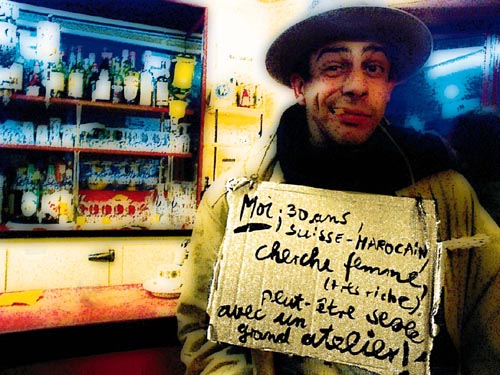 Moi: 30 ans,
SUISSE-MAROCAIN,
cherche femme,
(très riche),
peut-être seule
avec un
grand atelier!